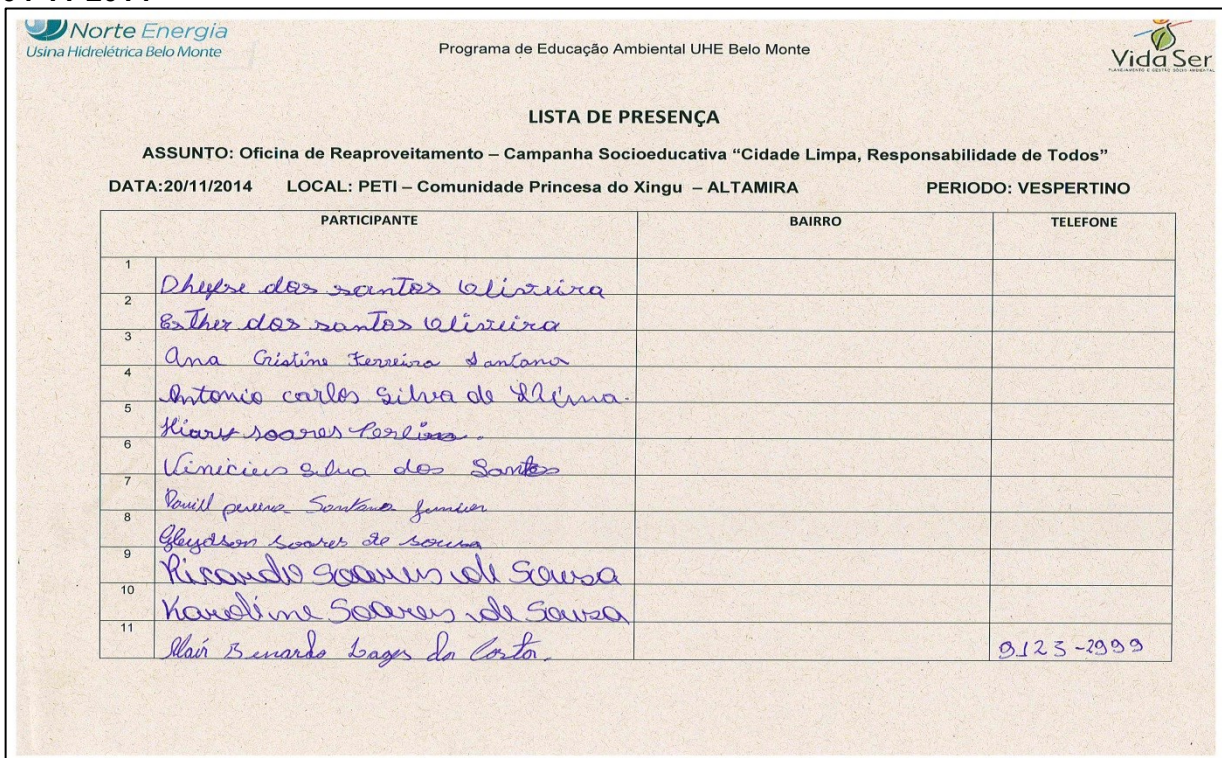 Norte Energia
Usina Hidrelétrica Belo Monte
Programa de Educação Ambiental UHE Belo Monte
Vida Ser
LISTA DE PRESENÇA
ASSUNTO: Oficina de Reaproveitamento – Campanha Socioeducativa “Cidade Limpa, Responsabilidade de Todos”
DATA:20/11/2014 LOCAL: PETI – Comunidade Princesa do Xingu – ALTAMIRA PERIODO: VESPERTINO
PARTICIPANTE BAIRRO TELEFONE
1 dos santos Oliveira
2 Esther dos santos Oliveira
3 Ana Cristine Ferreira Santana
4 Antonio carlos Silva de
5 soares
6 Vinicius Silva dos Santos
7 Santana junior
8 Gleydson soares de sousa
9 Ricardo Soares de Sousa
10 Karoline Soares de Souza
11 Lages da Costa. 9123-2999